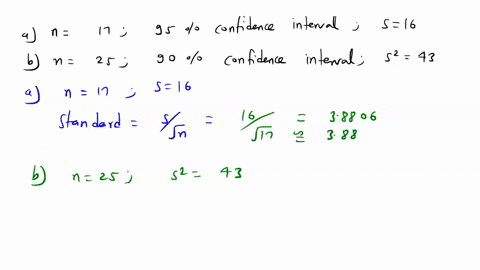 a) n = 17 ; 95 % confidence interval ; S = 16
b) n = 25 ; 90 % confidence interval ; s² = 43
a) n = 17 ; S = 16
Standard = s/√n = 16/√17 = 3.8806
≅ 3.88
b) n = 25 ; s² = 43